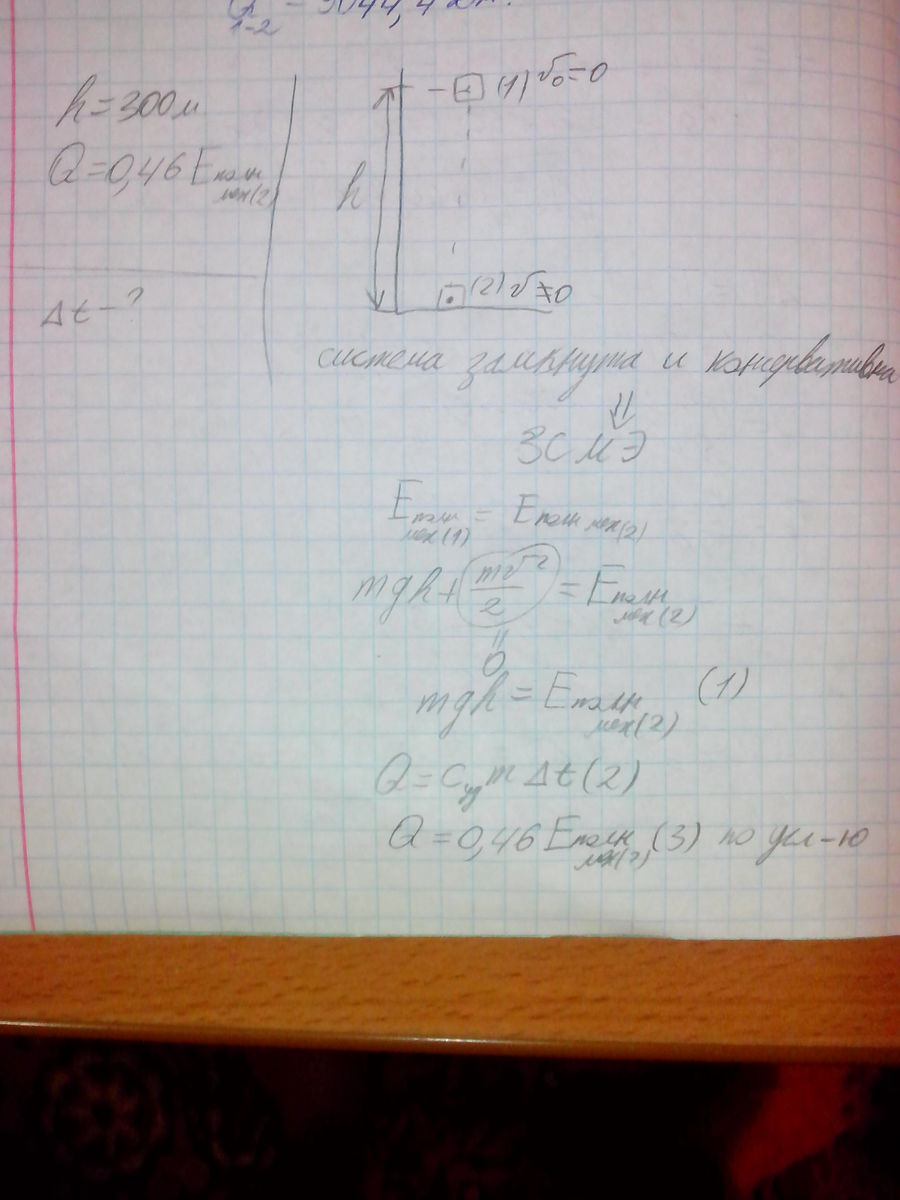 Q = 5044,4 Дж.
1-2
h = 300 м
Q = 0,46 E полн мех(2)
Δt - ?
(1) v₀ = 0
h
(2) v ≠ 0
система замкнута и консервативна
⇓
ЗСМЭ
E полн мех(1) = E полн мех(2)
mgh + mv²/2 = E полн мех(2)
"
0
mgh = E полн мех(2) (1)
Q = C уд m Δt (2)
Q = 0,46 E полн мех(2) (3) по усл-ю